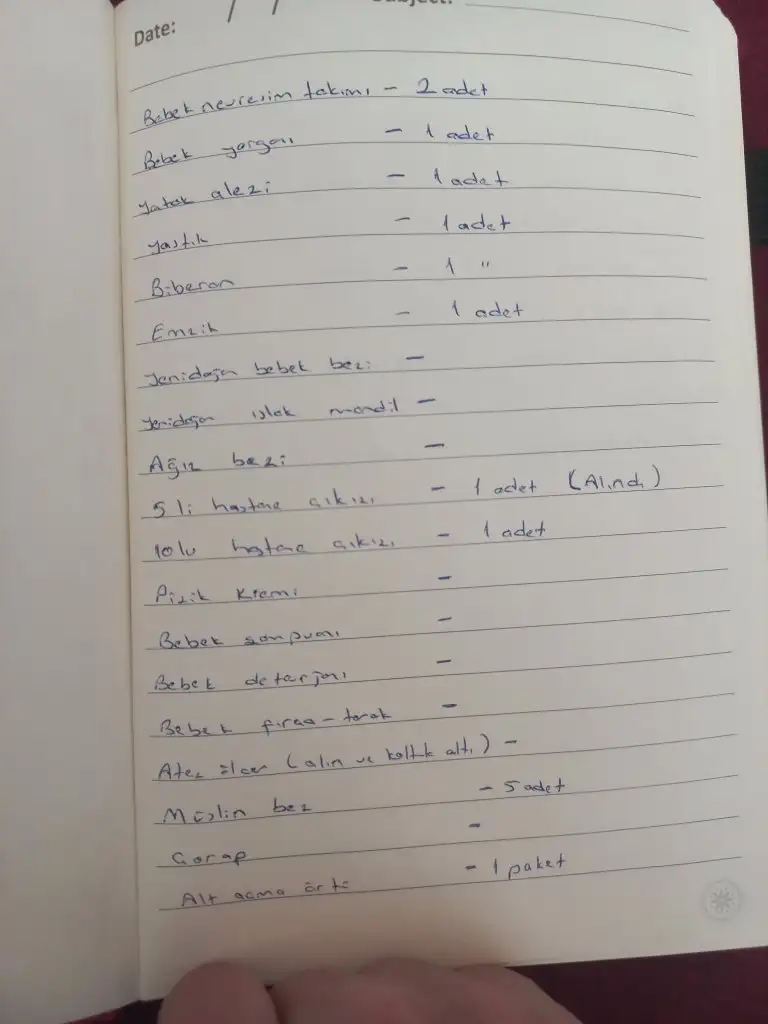 Date: / /
Subject:
Bebek nevresim takımı - 2 adet
Bebek yorganı - 1 adet
Yatak alezi - 1 adet
Yastık - 1 adet
Biberon - 1 "
Emzik - 1 adet
Yenidoğan bebek bezi -
Yenidoğan ıslak mendil -
Ağız bezi -
5 li hastane çıkışı - 1 adet (Alındı)
10lu hastane çıkışı - 1 adet
Pişik Kremi -
Bebek şampuanı -
Bebek deterjanı -
Bebek fırça-tarak -
Ateş ölçer (alın ve koltuk altı) -
Müslin bez - 5 adet
Çorap -
Alt açma örtü - 1 paket